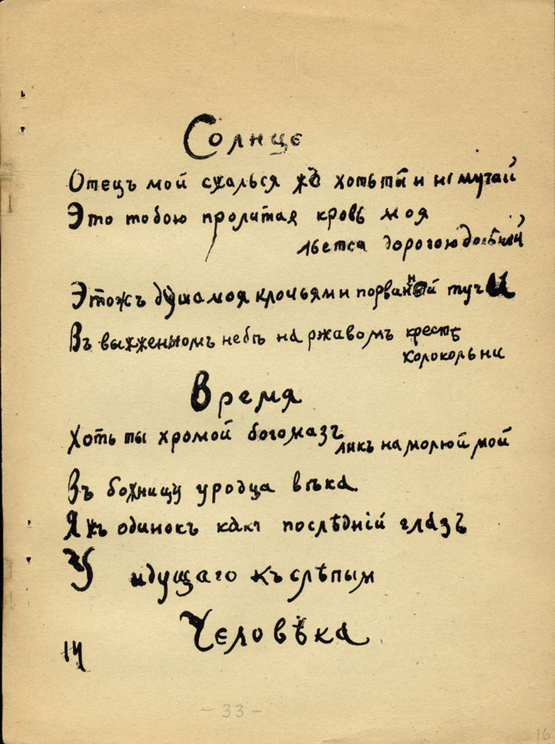 Солнце
Отецъ мой сжалься жъ хоть ты и не мучай
Это тобою пролитая кровь моя
льется дорогою дольней
Этожъ душа моя клочьями порванной тучи
Въ выжженномъ небѣ на ржавомъ крестѣ
колокольни
Время
Хоть ты хромой богомазъ
ликъ намолюй мой
Въ божницу уродца вѣка
Я жъ одинокъ какъ послѣдній глазъ
У идущаго къ слѣпым
Человѣка
14
- 33 -
16